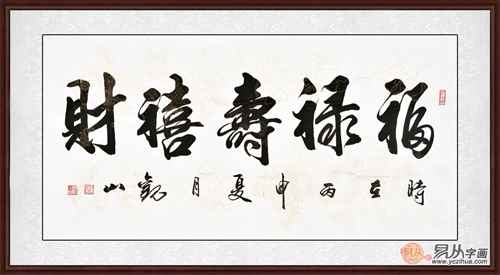 福禄壽禧財
時在丙申夏月観山
易从字画
www.yczihua.com